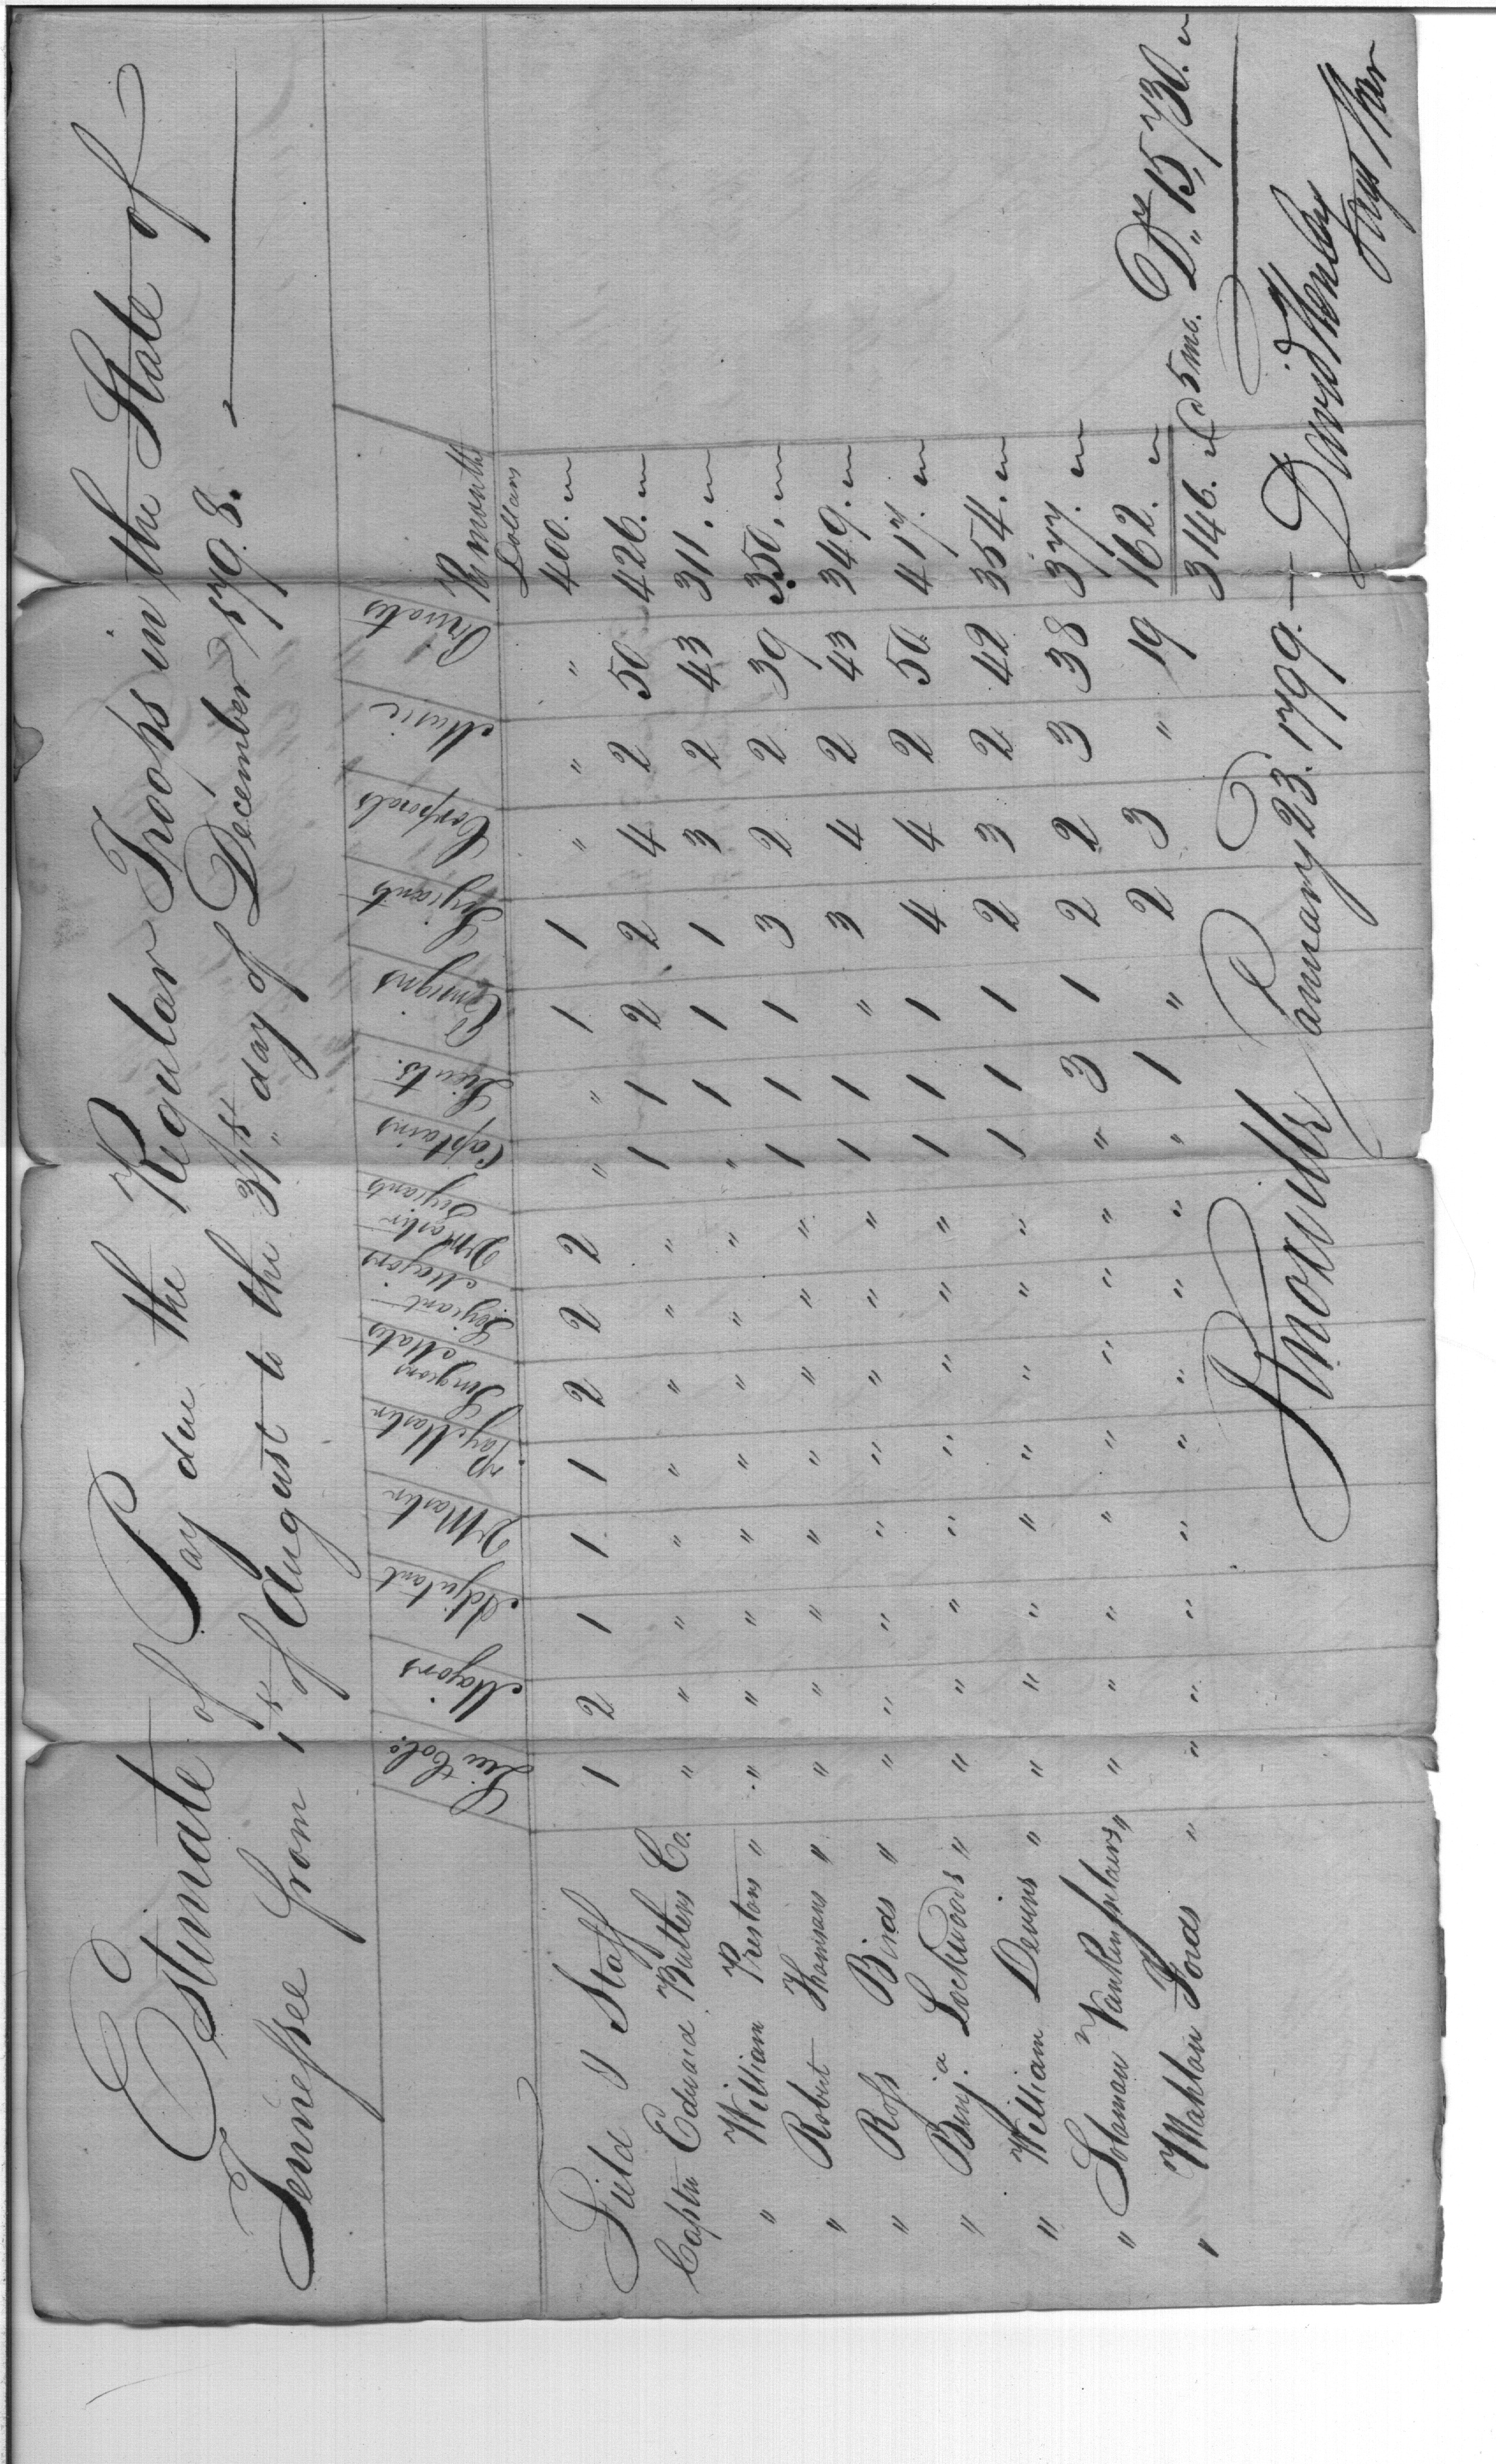 Estimate of Pay due the Regular Troops in the State of
Tennessee from 1st of August to the 31st day of December 1798. —
Lieu Colo. Majors Adjutant QrMaster Pay Master Surgeons Mates Serjeant Majors QrMaster Serjeants Captains Lieuts. Ensigns Serjeants Corporals Music Privates Pr month Dollars
Field & Staff 1 2 1 1 1 2 2 2 " " 1 1 " " " 400. "
Captn Edward Butlers Co. " " " " " " " " 1 1 2 2 4 2 50 426. "
" William Prestons " " " " " " " " " " 1 1 1 3 2 43 311. "
" Robert Thomsons " " " " " " " " " 1 1 1 3 2 2 39 350. "
" Ross Birds " " " " " " " " " 1 1 " 3 4 2 43 349. "
" Benja. Lockwoods " " " " " " " " " 1 1 1 4 4 2 50 417. "
" William Devins " " " " " " " " " 1 1 1 2 3 2 42 354. "
" Soloman Van Renselaers " " " " " " " " " " 3 1 2 2 3 38 377. "
" Mahlon Fords " " " " " " " " " " 1 " 2 3 " 19 162. "
3146. is @ 5 mo. Drs 15,730. "
Knoxville January 23. 1799. — David Henley